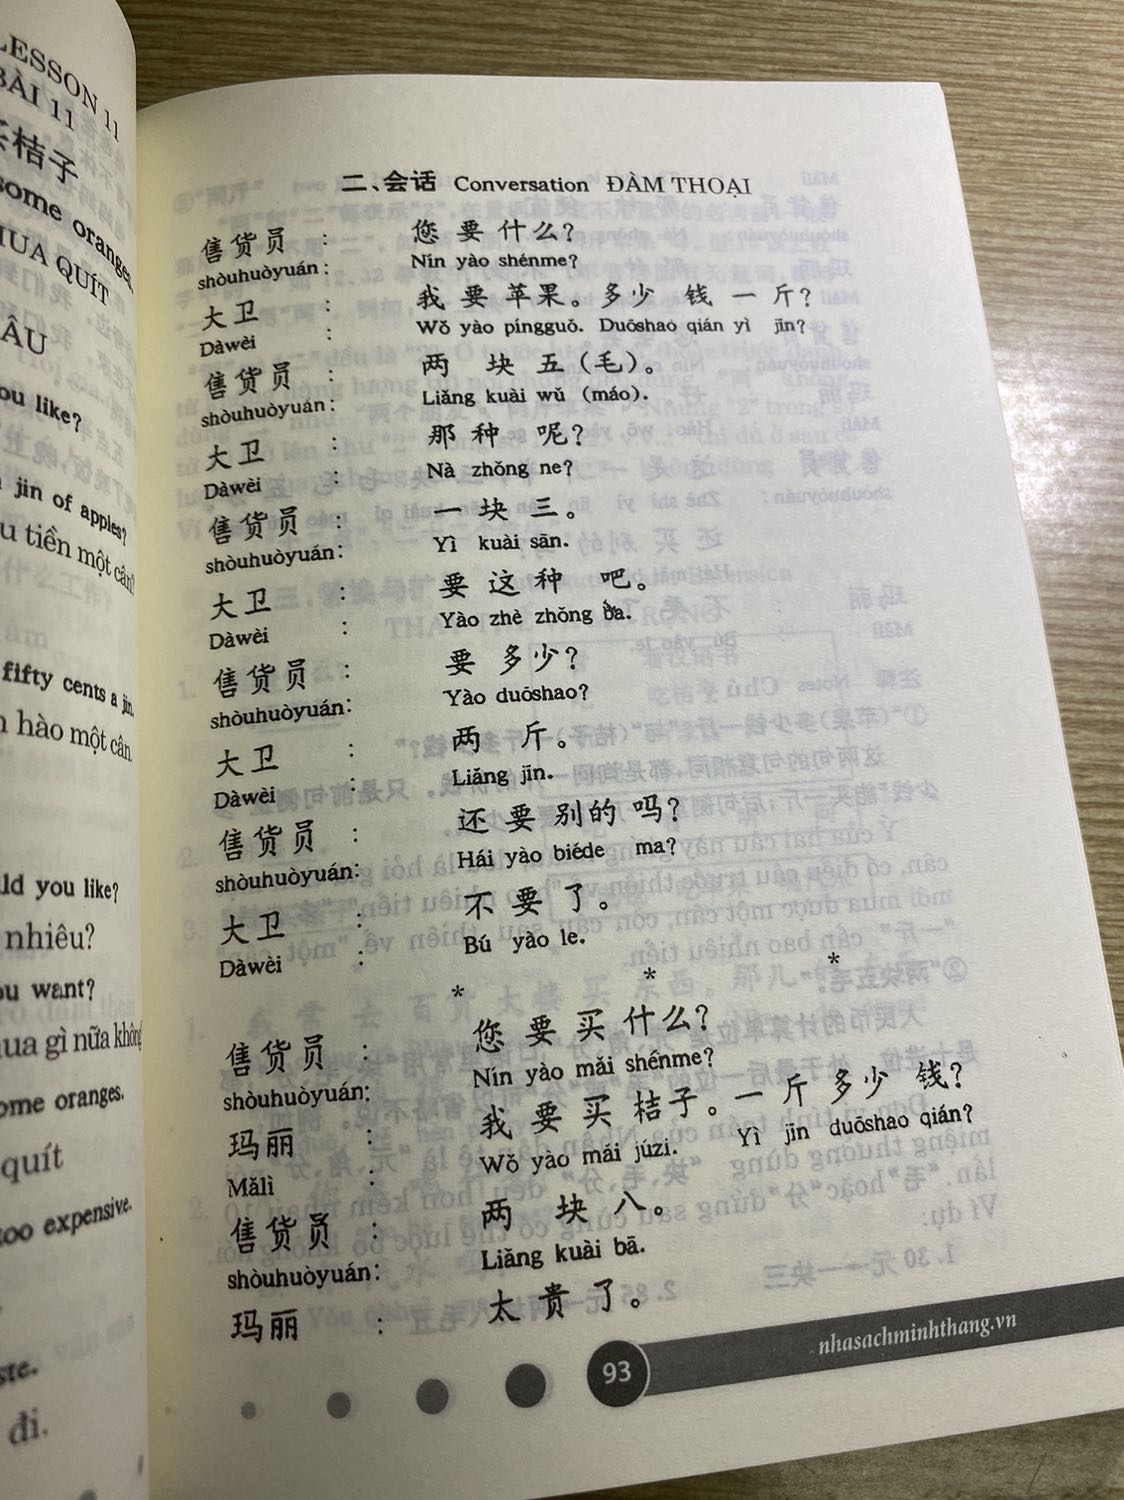 LESSON 11
BÀI 11
桔子
some oranges.
MUA QUÍT
ÂU
you like?
jin of apples?
tiền một cân?
fifty cents a jin.
hào một cân.
you like?
nhiêu?
want?
mua gì nữa không
some oranges.
quít
too expensive.
đi.
二、会话 Conversation ĐÀM THOẠI
售货员 : 您 要 什么?
shòuhuòyuán: Nín yào shénme?
大卫 : 我 要 苹果。多少 钱 一 斤?
Dàwèi Wǒ yào píngguǒ. Duōshao qián yì jīn?
售货员 : 两 块 五 (毛)。
shòuhuòyuán: Liǎng kuài wǔ (máo).
大卫 : 那 种 呢?
Dàwèi Nà zhǒng ne?
售货员 : 一 块 三。
shòuhuòyuán: Yì kuài sān.
大卫 : 要 这 种 吧。
Dàwèi : Yào zhè zhǒng ba.
售货员 : 要 多少?
shòuhuòyuán: Yào duōshao?
大卫 : 两 斤。
Dàwèi : Liǎng jīn.
售货员 : 还 要 别的 吗?
shòuhuòyuán: Hái yào biéde ma?
大卫 : 不 要 了。
Dàwèi : Bú yào le.
* * *
售货员 : 您 要 买 什么?
shòuhuòyuán: Nín yào mǎi shénme?
玛丽 : 我 要 买 桔子。一 斤 多少 钱?
Mǎlì : Wǒ yào mǎi júzi. Yì jīn duōshao qián?
售货员 : 两 块 八。
shòuhuòyuán: Liǎng kuài bā.
玛丽 : 太 贵 了。
93
nhasachminhthang.vn